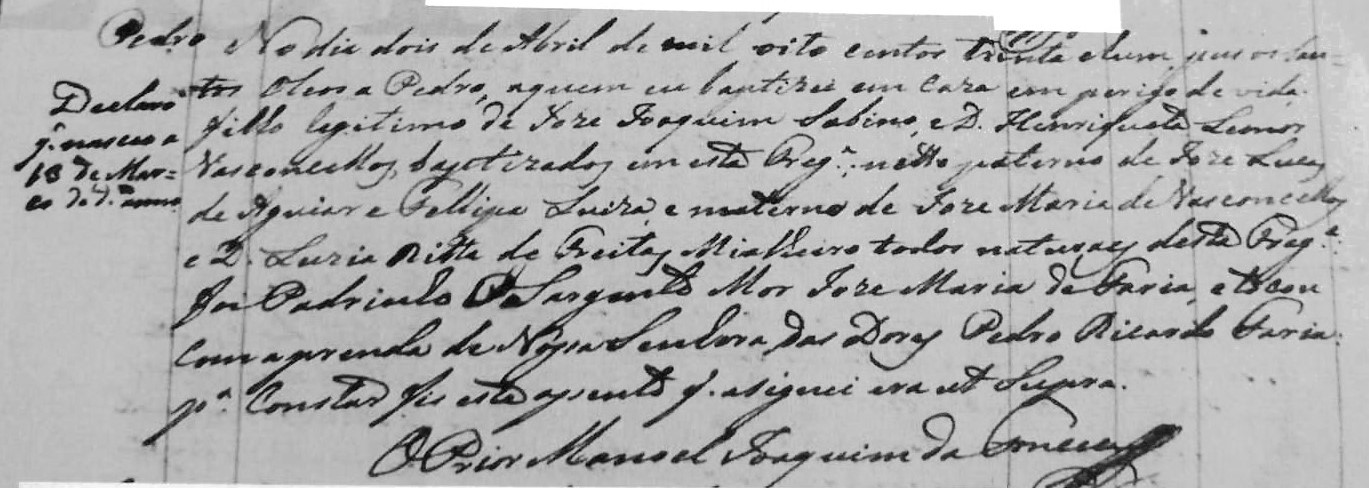 Pedro
No dia dois de Abril de mil oito centos trinta e hum, pus os San=
tos Oleos a Pedro, aquem eu baptizei em caza em perigo de vida.
filho legitimo de Joze Joaquim Sabino, e D. Henriqueta Lemos
Vasconcellos, baptizados em esta Freg.ª: netto paterno de Joze Luis
de Aguiar e Fellipa Luiza, e materno de Joze Maria de Vasconcellos
e D. Luzia Ritta de Freitas Mialheiro todos naturaes desta Freg.ª:
foi Padrinho o Sargento Mor Joze Maria de Faria, e tocou
com a prenda de Nossa Senhora das Dores Pedro Ricardo Faria:
p.ª Constar fis este assento q. asignei era ut Supra.
O Prior Manoel Joaquim da Fonceca
Declaro
q. nasceo a
18 de Mar=
co do d.º anno